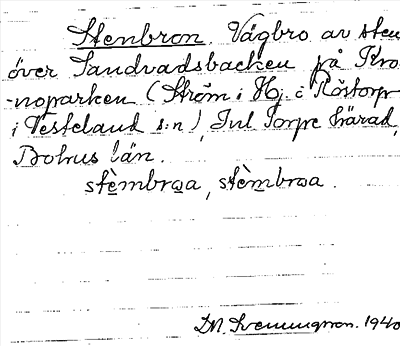 Stenbron. Vägbro av sten
över Sandvadsbacken på Kro
-noparken (Ström i Hj. i Röstorp
i Vesteland s:n), Inl Torpe härad,
Bohus län.
stèmbrωa, stèmbrωa.
D.N. Svenungsson. 1940